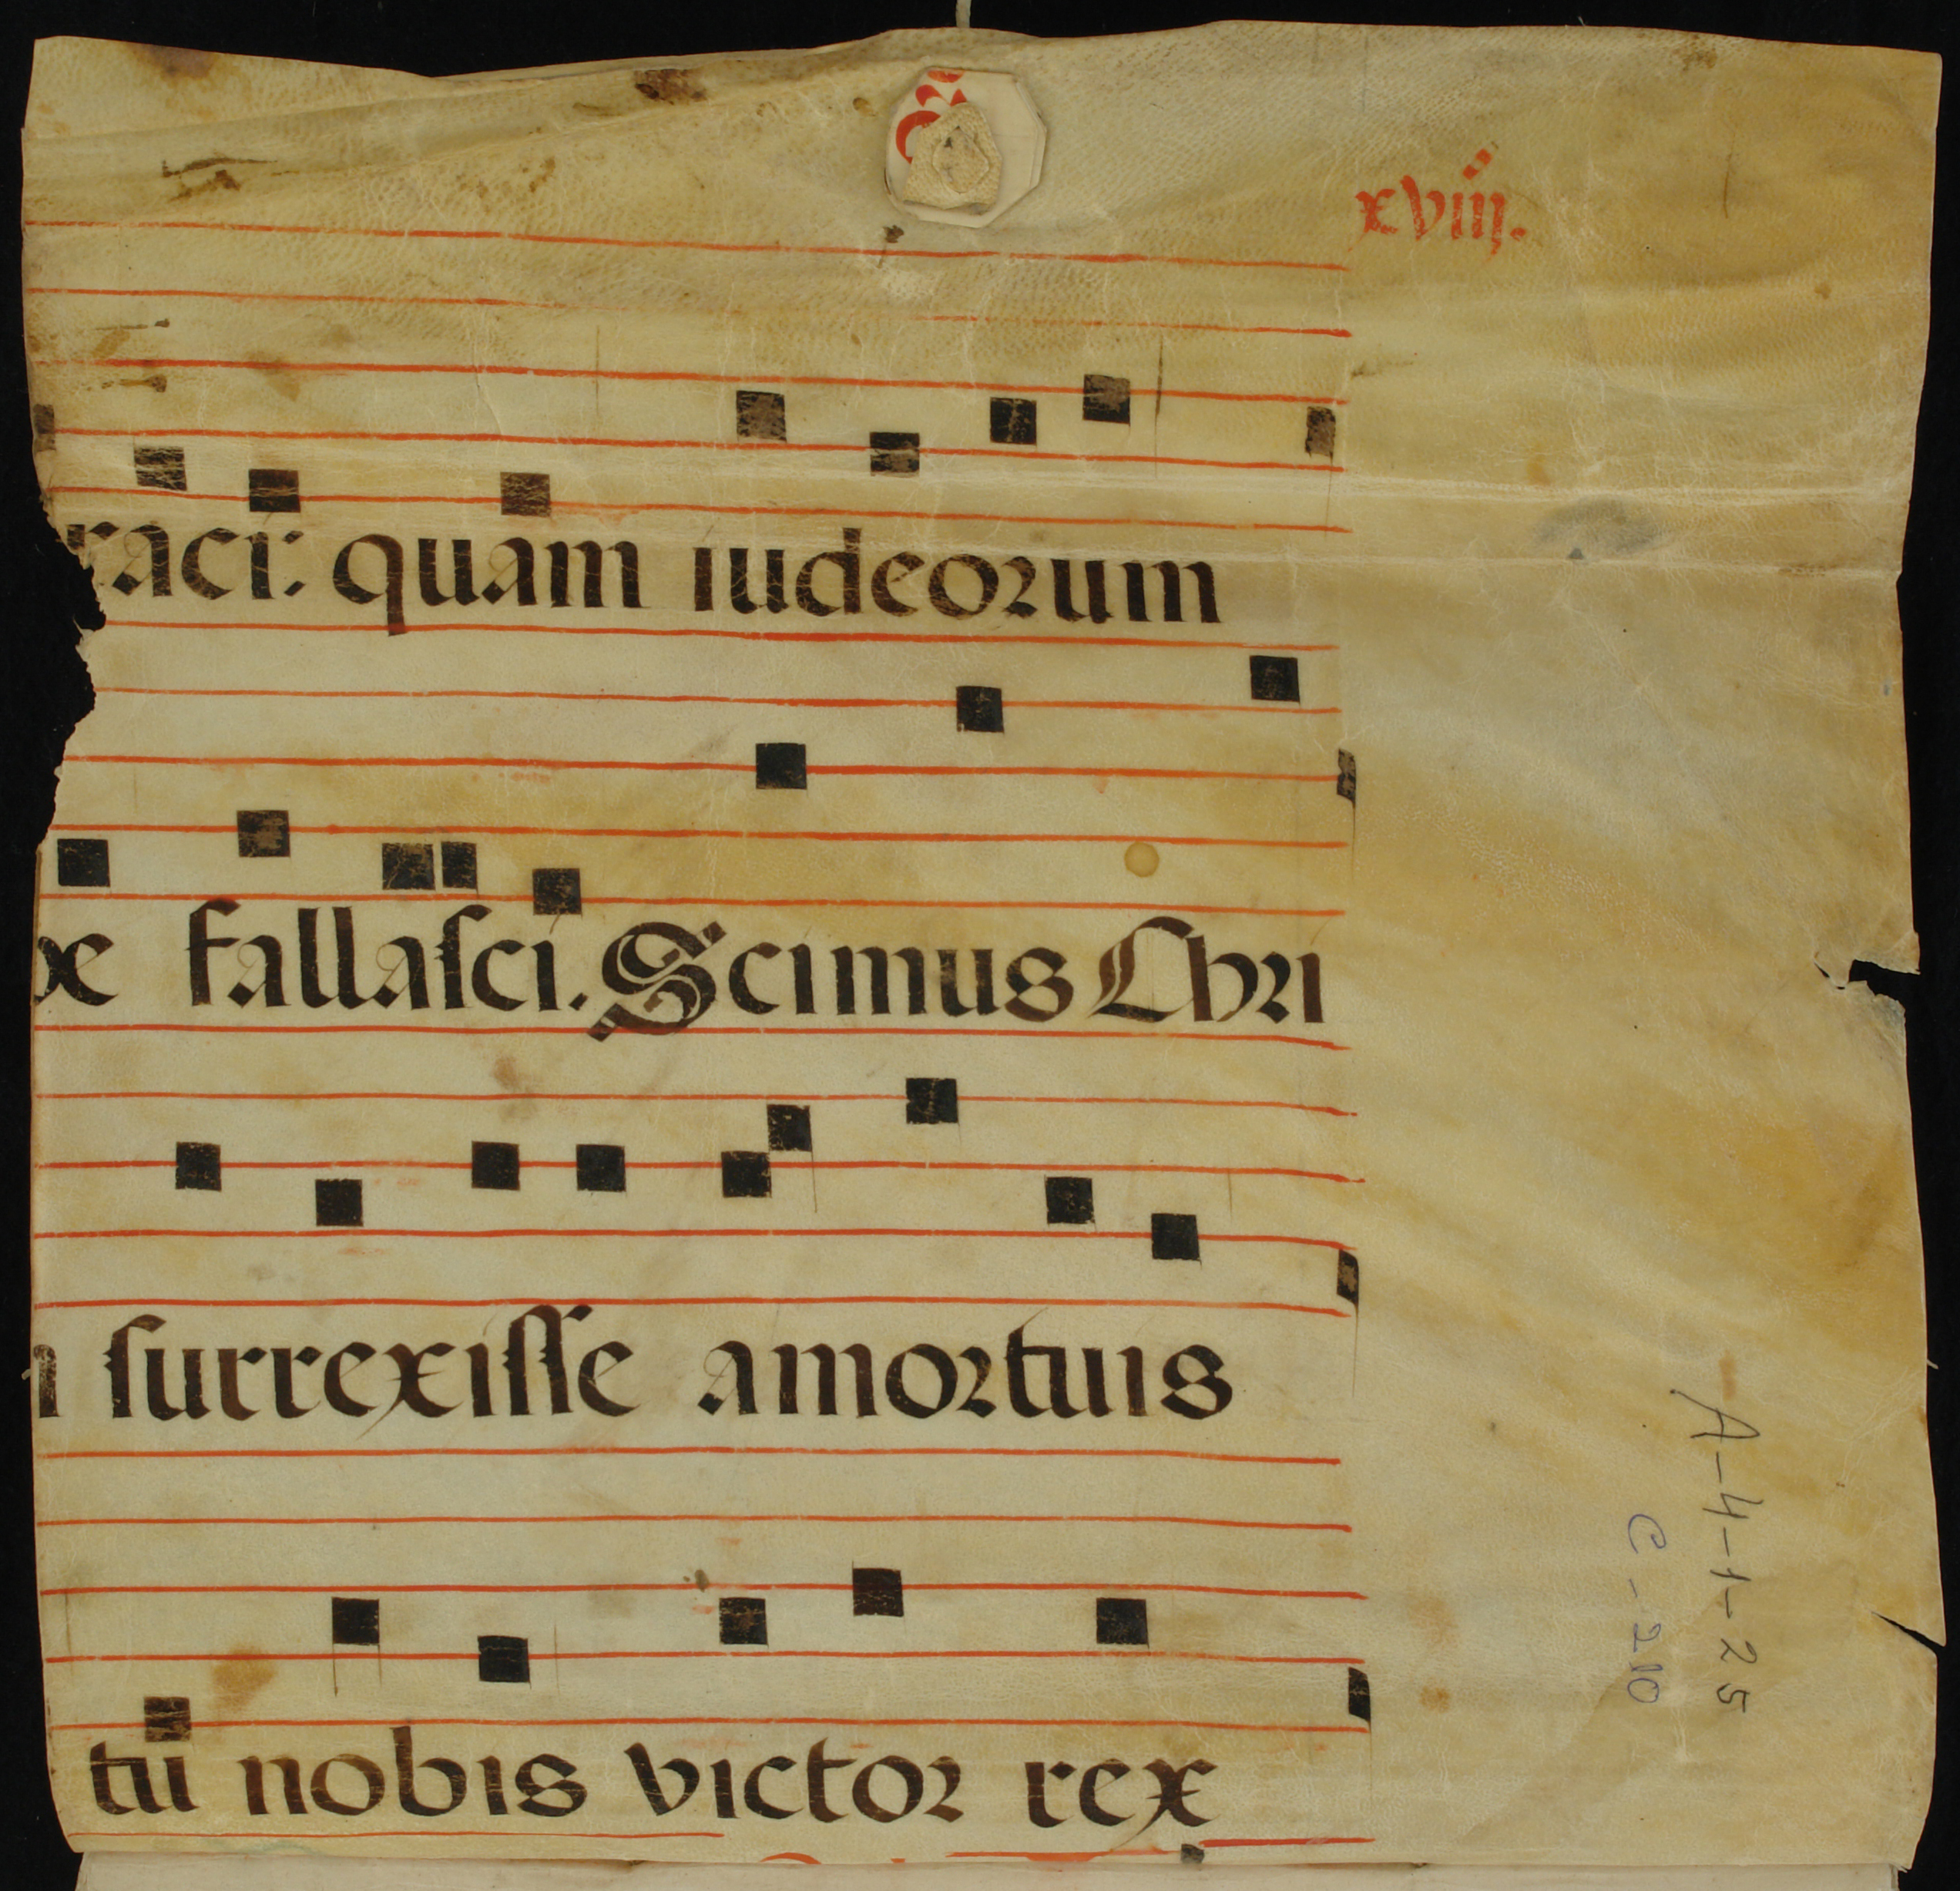 xviij.
raci: quam iudeorum
be fallasci. Scimus Chri
surrexisse amortuis
tu nobis victor rex
A-4-1-25
C-210